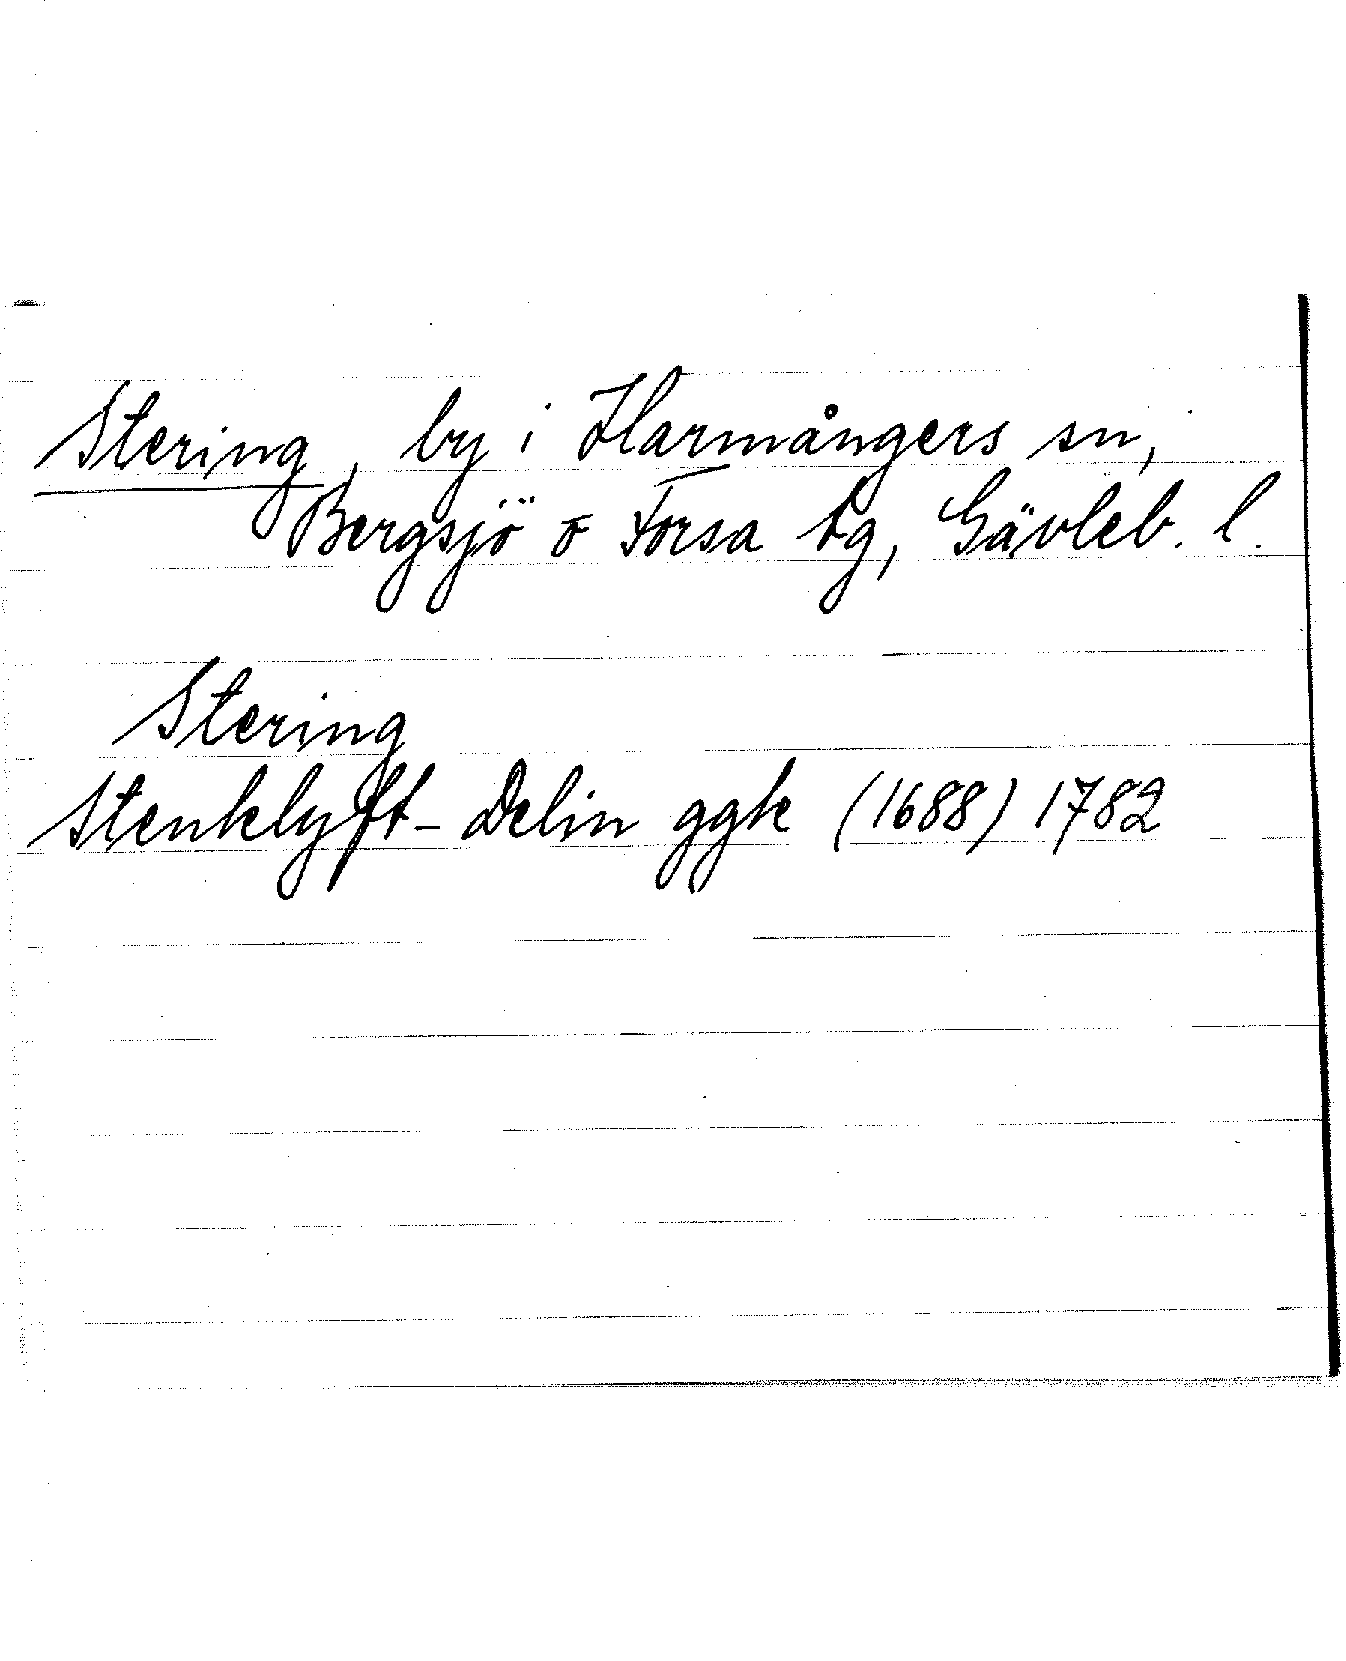 Stering, by i Harmångers sn,
Bergsjö o Forsa tg, Gävleb. l.
Stering
Stenklyft - Delin ggk (1688) 1782